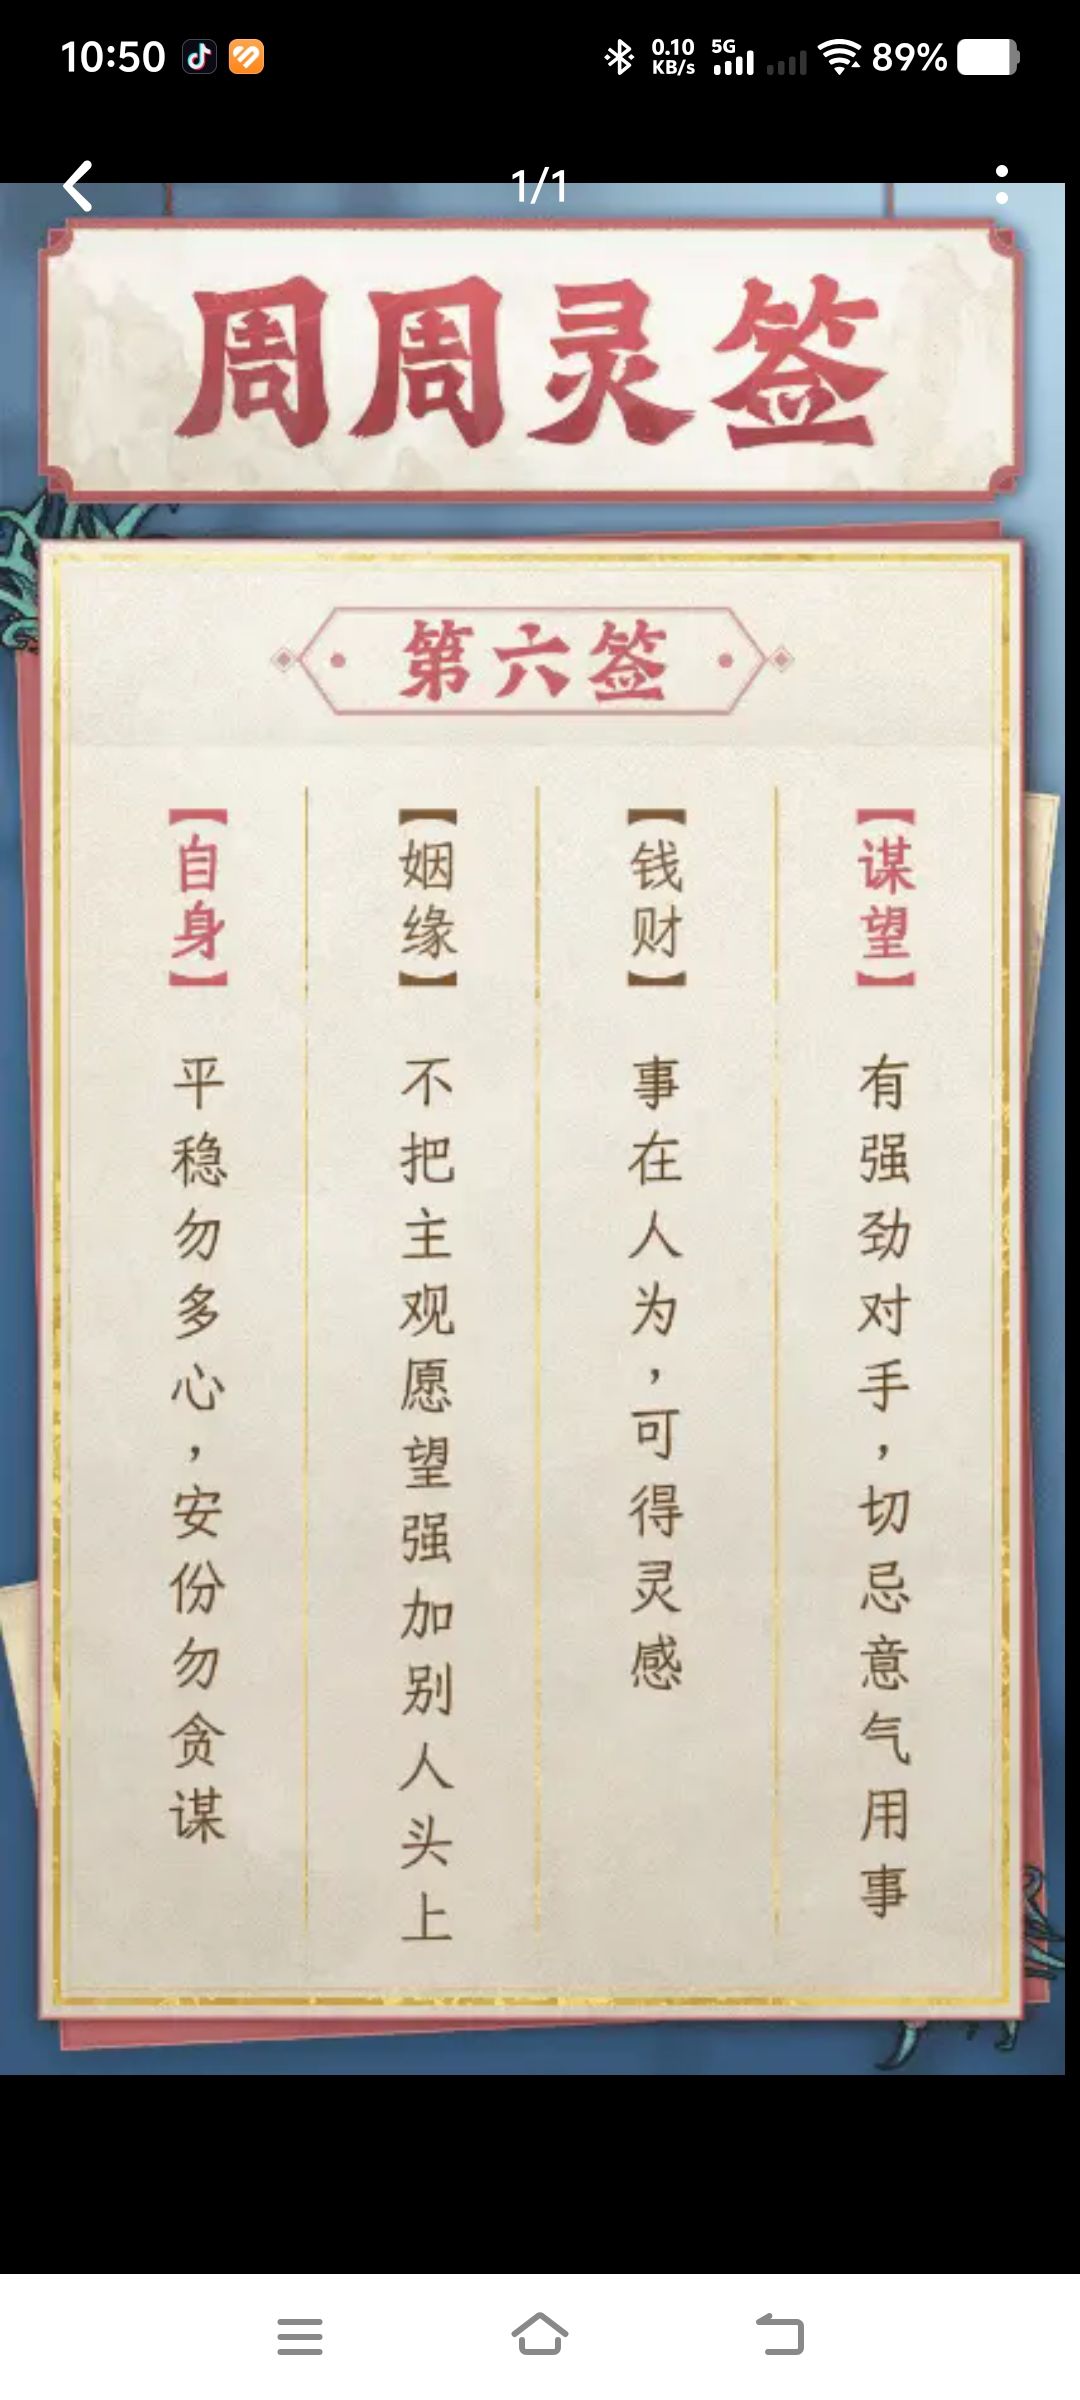 10:50
0.10 KB/s
5G
89%
1/1
周周灵签
第六签
【谋望】有强劲对手，切忌意气用事
【钱财】事在人为，可得灵感
【姻缘】不把主观愿望强加别人头上
【自身】平稳勿多心，安份勿贪谋